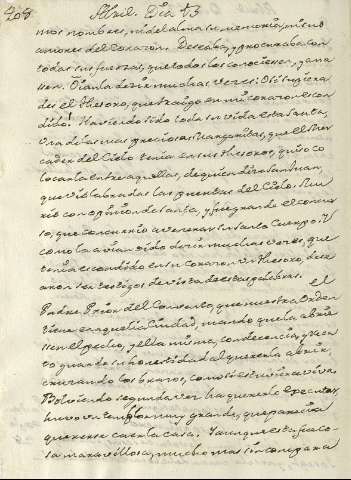 208 Abril. Dia 13
mos nombres, ni del alma su memoria, ni sus
amores del Corazon. Deseaba, y procuraba con
todas sus fuerzas, que todos los conociesen, y ama
sen. Oianla decir muchas veces: O si supiera
des el Thesoro, que traigo en mi corazon escon
dido! Haviendo sido toda su vida esta Santa,
Una de las mas preciosas Margaritas, que el Mer
cader del Cielo tenia en sus thesoros, quiso co
locarla entre aquellas, de quien dixo San Juan,
que vió labradas las puertas del Cielo. Mu
rió con opinion de Santa, y fue grande el concur
so, que concurrió a venerar su Santo Cuerpo. Y
como la avian oido decir muchas veces, que
tenia escondido en su Corazon un thesoro, dese
aron ser testigos de vista de estas palabras. El
Padre Prior del Convento, que nuestra Orden
tiene en aquella Ciudad, mandó que la abrie
ssen el pecho, y ella misma, con decencia, y reca
to guardó su honestidad al quererla abrir,
cruzando los brazos, como si estuviera viva.
Bolviendo segunda vez ha quererlo executar,
huvo un temblor muy grande, que parecia
quererse caer la casa. Y aunque esta fue co
sa maravillosa, mucho mas sin compara